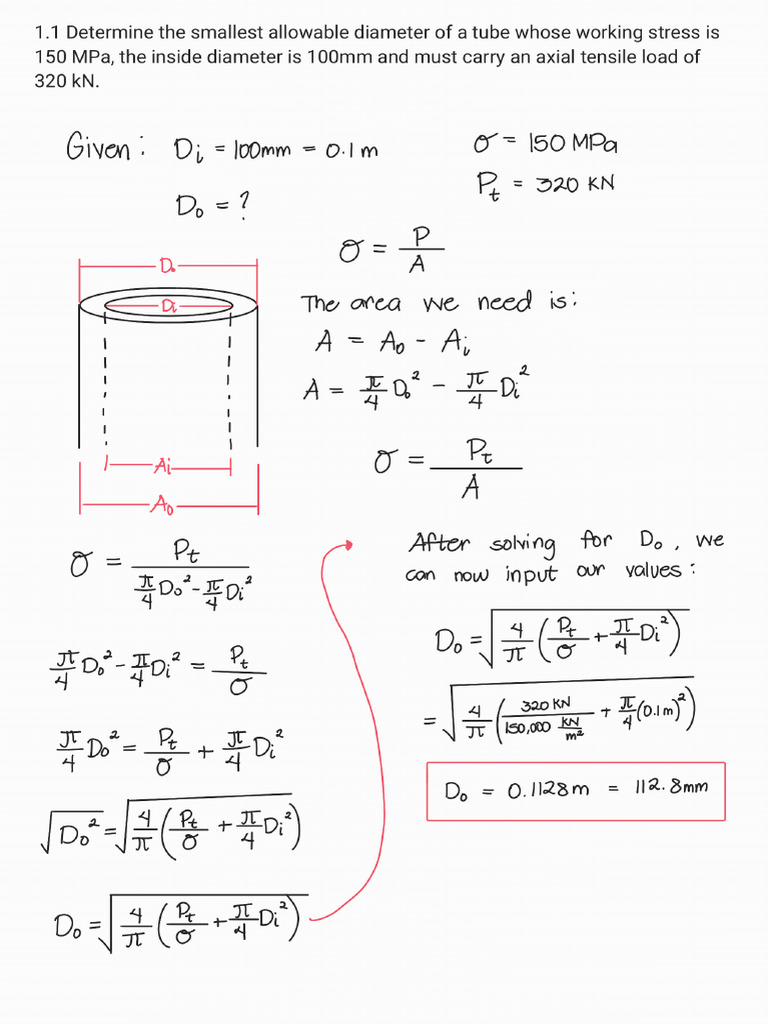 1.1 Determine the smallest allowable diameter of a tube whose working stress is
150 MPa, the inside diameter is 100mm and must carry an axial tensile load of
320 kN.
Given: Dᵢ = 100mm = 0.1 m
σ = 150 MPa
Pₜ = 320 KN
D₀ = ?
σ = P / A
D₀
Di
The area we need is:
A = A₀ - Aᵢ
A = π/4 D₀² - π/4 Di²
σ = Pₜ / A
Ai
A₀
σ = Pt / (π/4 D₀² - π/4 Di²)
π/4 D₀² - π/4 Di² = Pₜ/σ
π/4 D₀² = Pₜ/σ + π/4 Di²
√D₀² = √(4/π (Pₜ/σ + π/4 Di²))
D₀ = √(4/π (Pₜ/σ + π/4 Di²))
After solving for D₀, we
can now input our values:
D₀ = √(4/π (Pₜ/σ + π/4 Di²))
= √(4/π (320 KN / 150,000 KN/m² + π/4 (0.1m)²))
D₀ = 0.1128 m = 112.8mm